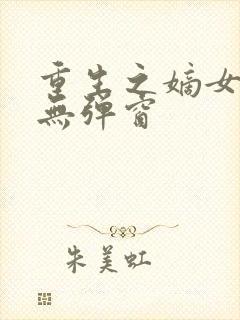 重生之嫡女
無彈窗
朱美虹